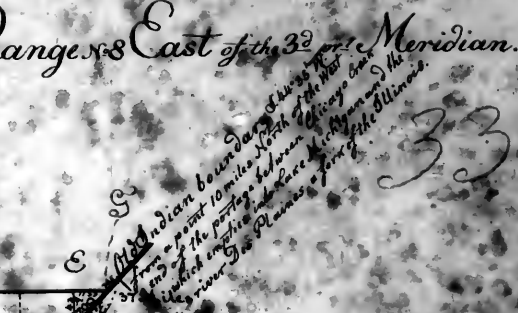 ange No 8 East of the 3d pr! Meridian.
33
G
E
Old Indian boundary S 44° 38' W
from a point 10 miles North of the West
end of the portage between Chicago Creek
which empties into Lake Michigan and the
river Des Plaines a fork of the Illinois.
37